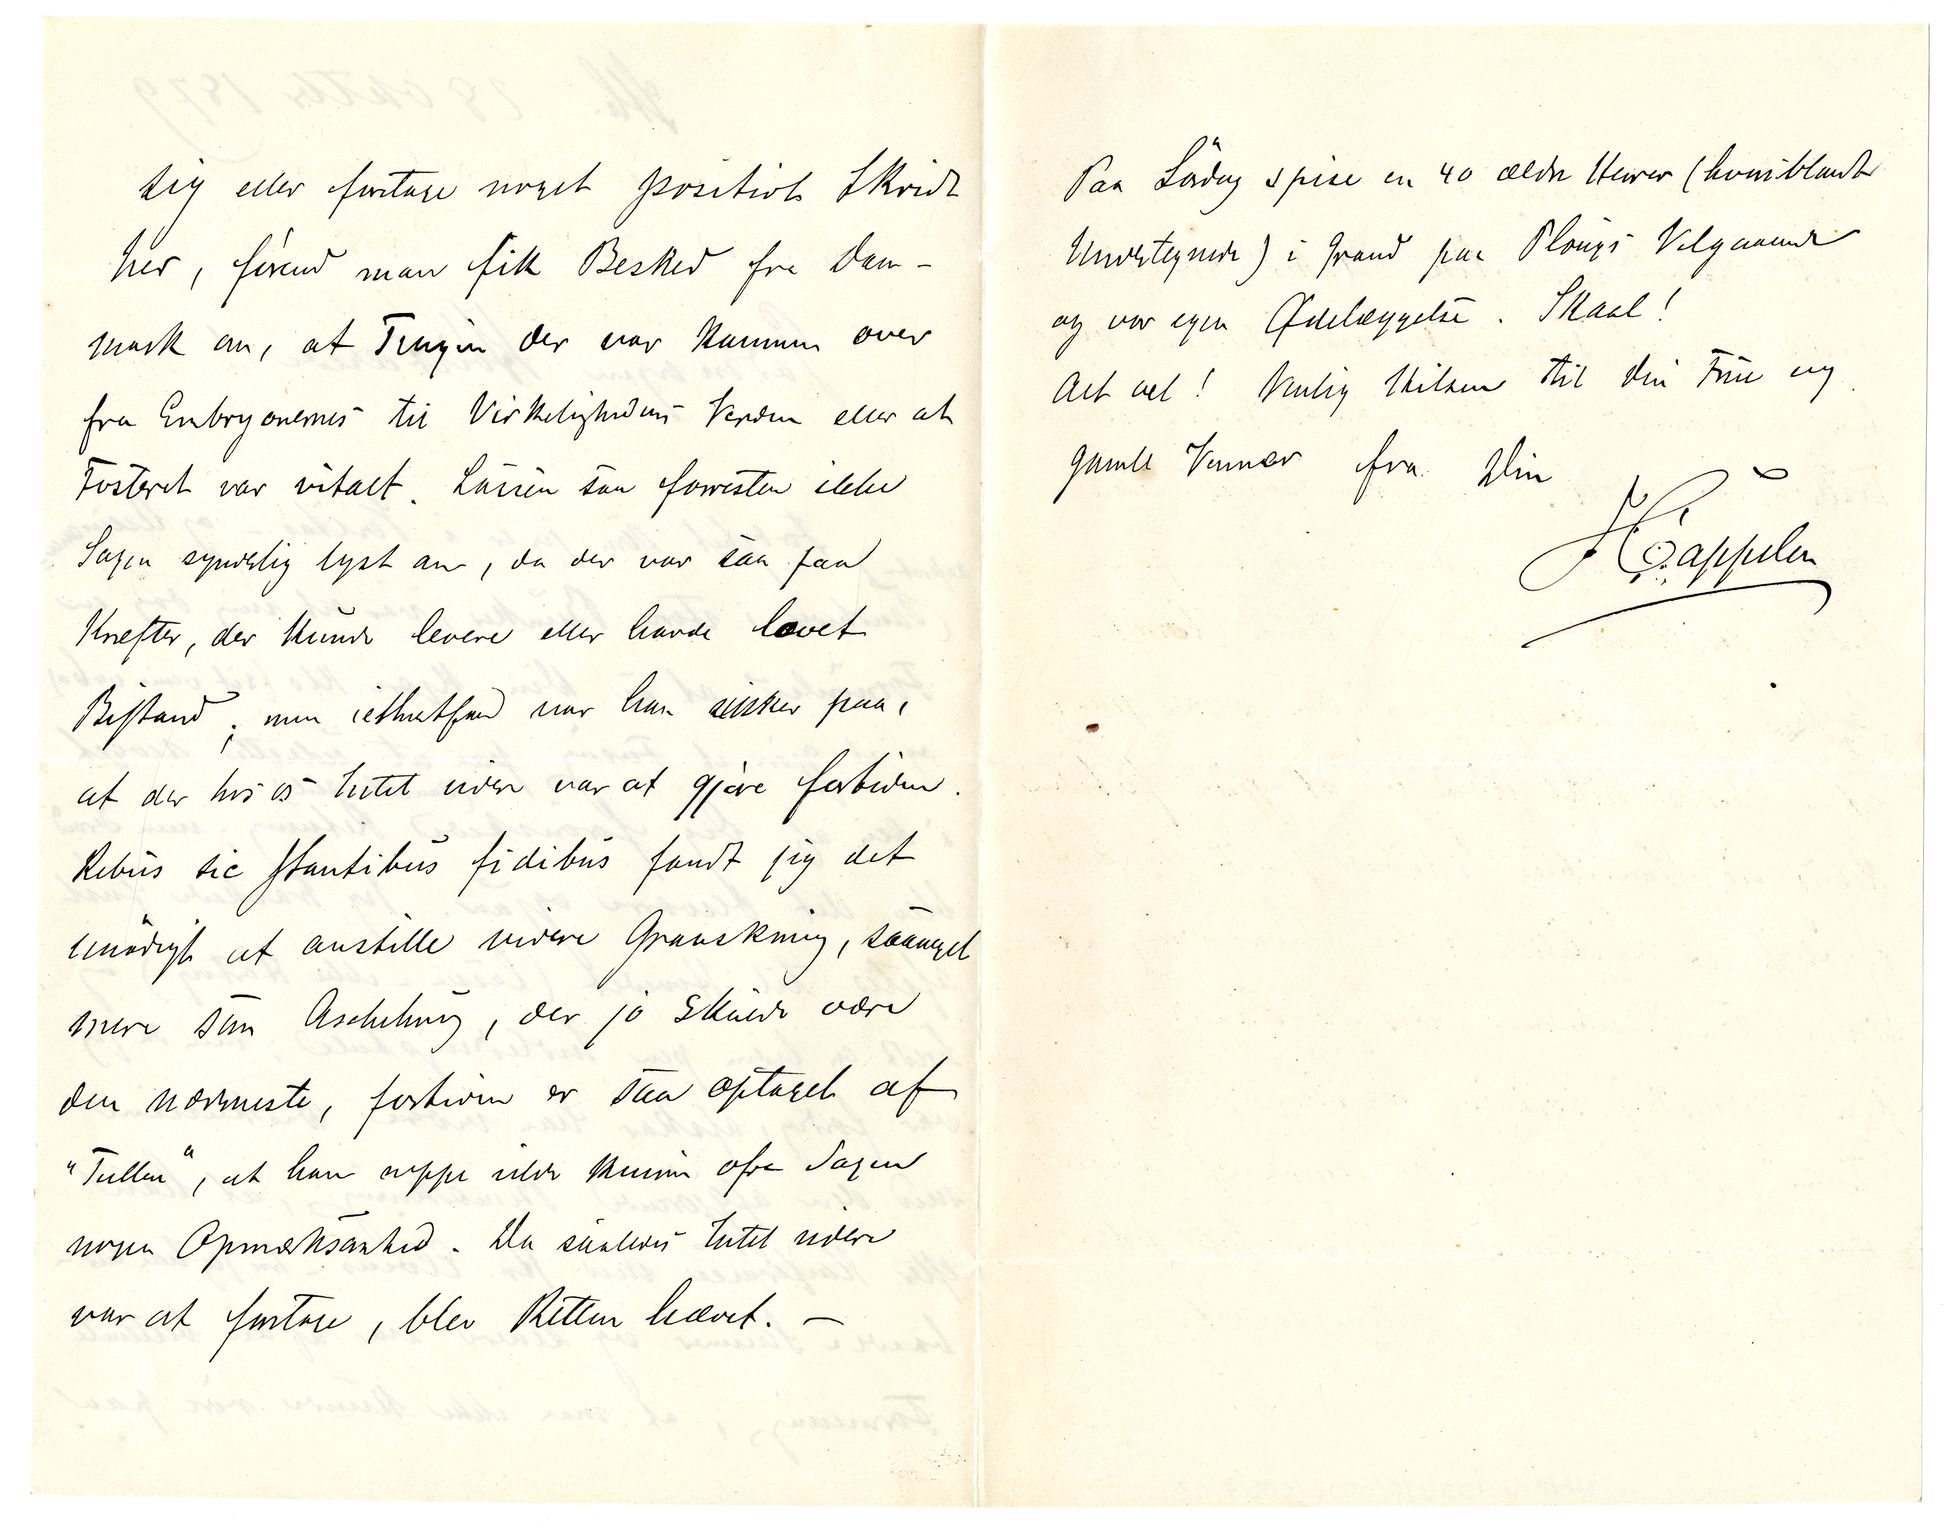 sig eller foretage noget positivt Skridt
her, førend man fik Besked fra Dan-
mark om, at Tingen der var kommen over
fra Embryonernes til Virkelighedens Verden eller at
Fosteret var vitalt. Lassen saa forresten ikke
Sagen synderlig lyst an, da der var saa faa
Kræfter, der kunde levere eller havde lovet
Bistand; men iethvertfald var han sikker paa,
at der hos os Intet videre var at gjøre fortiden.
Rebus sic stantibus fidibus fandt jeg det
unödigt at anstille videre Granskning, saameget
mere som Aschehoug, der jo skulde være
den nærmeste, fortiden er saa optaget af
"Tullen", at han neppe vilde kunne ofre Sagen
nogen Opmærksomhed. Da saaledes Intet videre
var at foretage, blev Retten hævet. —
Paa Lördag spise en 40 ældre Herrer (hvoriblandt
Undertegnede) i Grand paa Plougs Velgaaende
og vor egen Ødelæggelse. Skaal!
Alt vel! Venlig Hilsen til din Frue og
gamle Venner fra Din
Cappelen
28 Oktbr 1879